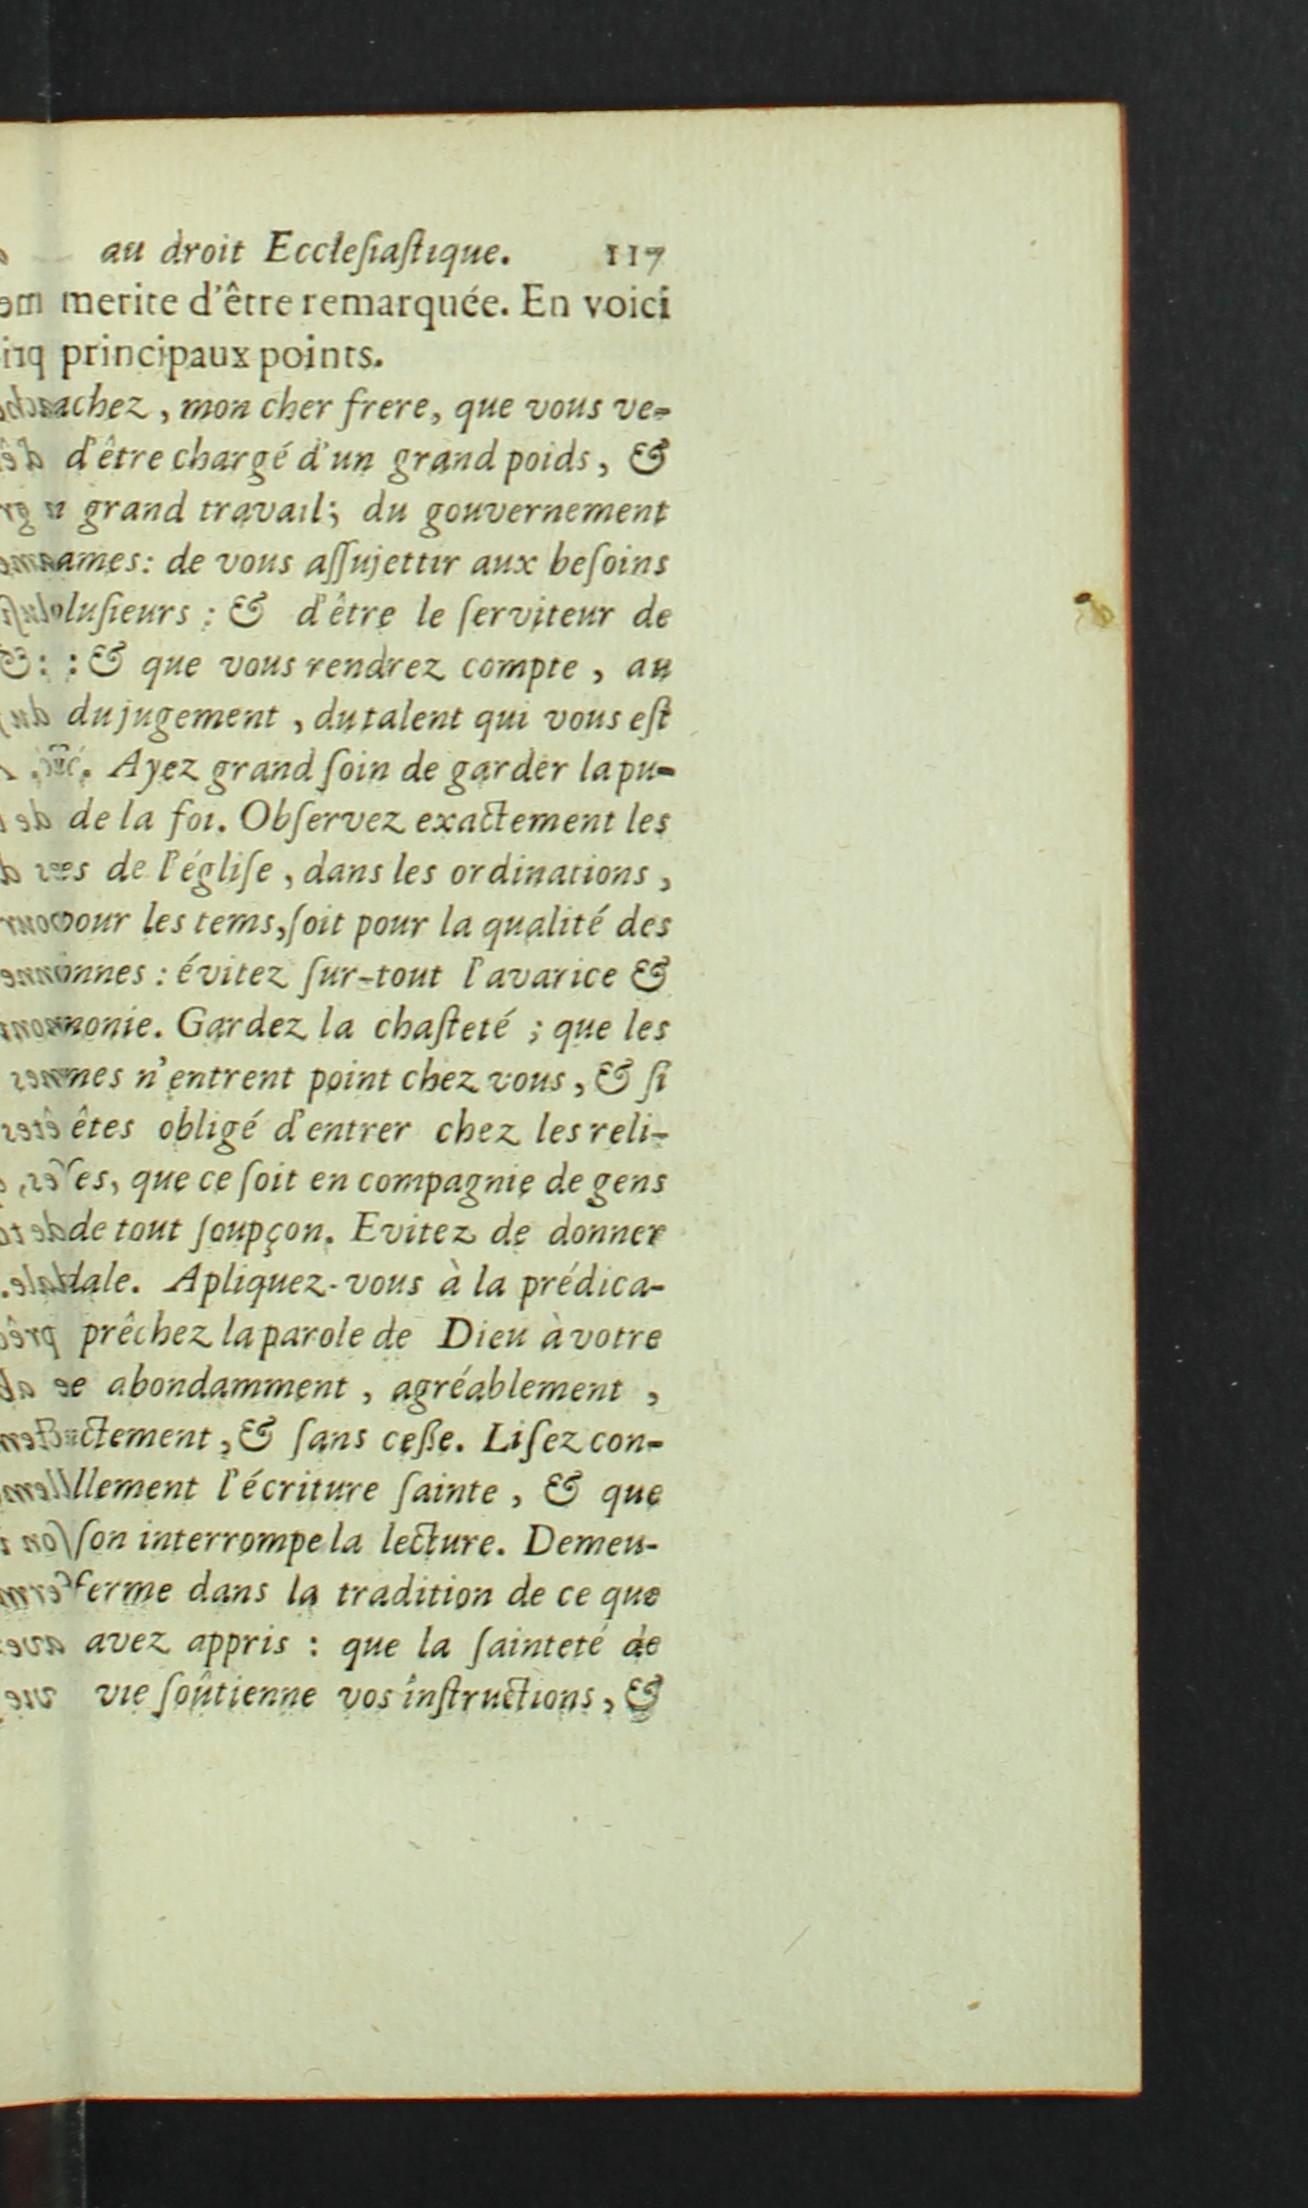 au droit Ecclesiastique. 117
merite d'être remarquée. En voici
principaux points.
achez, mon cher frere, que vous ve-
d'être chargé d'un grand poids, &
grand travail; du gouvernement
ames: de vous aſſujettir aux beſoins
luſieurs : & d'être le ſerviteur de
: & que vous rendrez compte, au
du jugement, du talent qui vous eſt
Ayez grand ſoin de garder la pu-
de la foi. Obſervez exactement les
es de l'égliſe, dans les ordinations,
our les tems, ſoit pour la qualité des
onnes : évitez ſur-tout l'avarice &
monie. Gardez la chaſteté ; que les
mes n'entrent point chez vous, & ſi
êtes obligé d'entrer chez les reli-
ſes, que ce ſoit en compagnie de gens
de tout ſoupçon. Evitez de donner
dale. Apliquez-vous à la prédica-
prêchez la parole de Dieu à votre
e abondamment, agréablement,
ctement, & ſans ceſſe. Liſez con-
llement l'écriture ſainte, & que
ſon interrompe la lecture. Demeu-
ferme dans la tradition de ce que
avez appris : que la ſainteté de
vie ſoûtienne vos inſtructions, &